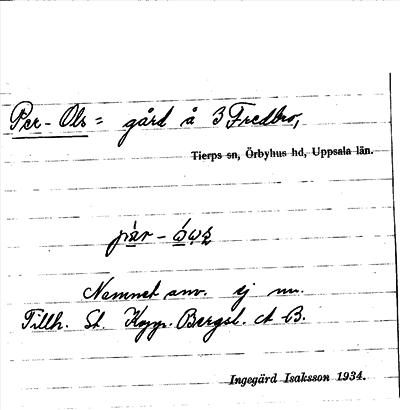 Per-Ols = gård å 3 Fredbro,
Tierps sn, Örbyhus hd, Uppsala län.
Namnet anv. ej nu.
Tillh. St. Koppr. Bergsl. A B.
Ingegärd Isaksson 1934.